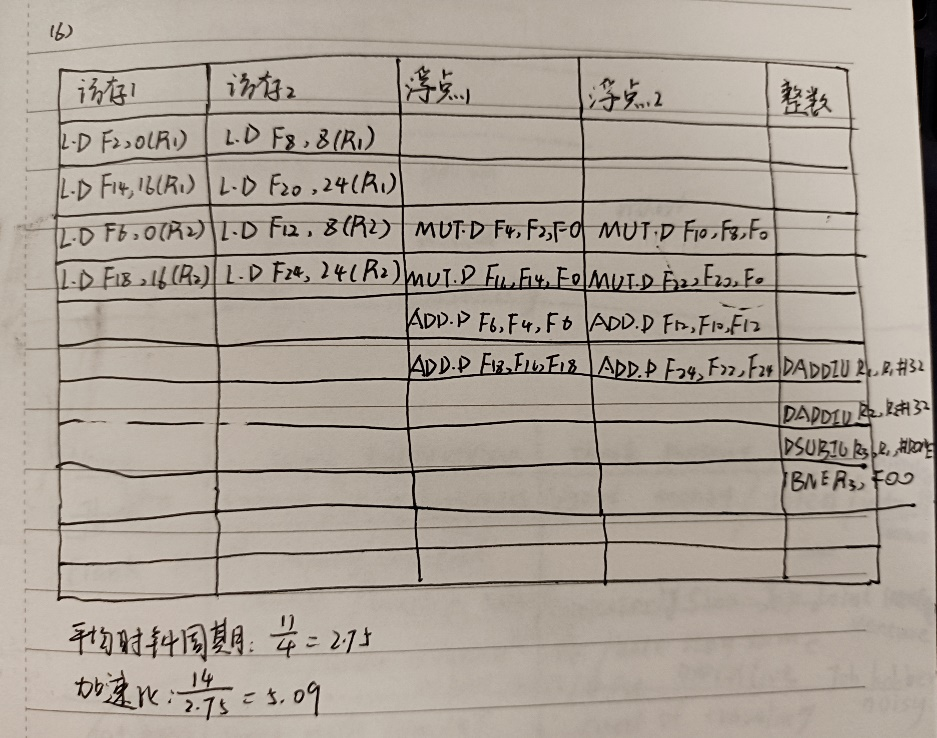 (6)
访存1 访存2 浮点1 浮点2 整数
L.D F2,0(R1) L.D F8,8(R1)
L.D F14,16(R1) L.D F20,24(R1)
L.D F6,0(R2) L.D F12,8(R2) MUT.D F4,F2,F0 MUT.D F10,F8,F0
L.D F18,16(R2) L.D F24,24(R2) MUT.D F16,F14,F0 MUT.D F22,F20,F0
ADD.D F6,F4,F6 ADD.D F12,F10,F12
ADD.D F18,F16,F18 ADD.D F24,F22,F24 DADDIU R1,R1,#32
DADDIU R2,R2,#32
DSUBIU R3,R1,
BNE R3, FOO
平均时钟周期: 11/4=2.75
加速比: 14/2.75=5.09